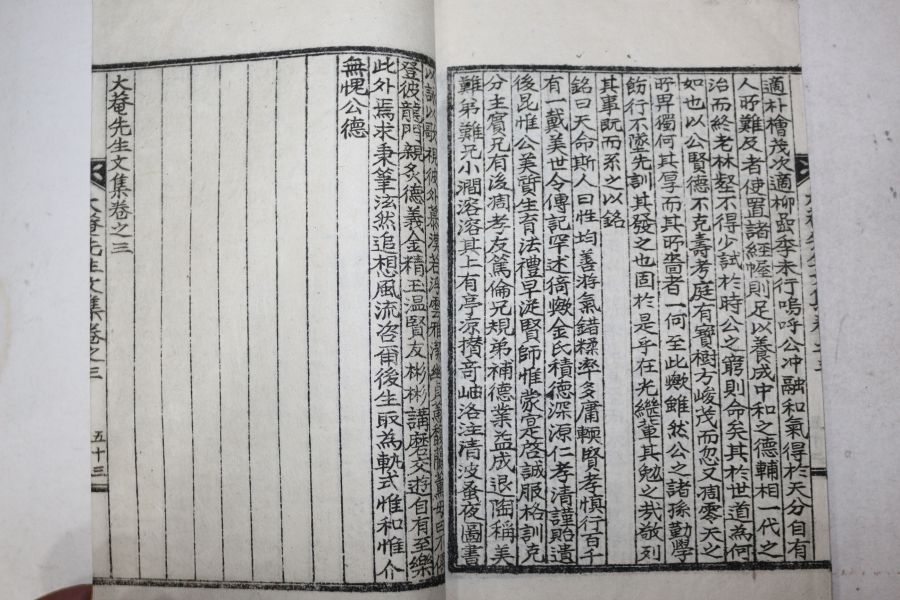 適朴檜茂次適柳㘽季未行嗚呼公冲融和氣得於天分自有
人所難及者使置諸經幄則足以養成中和之德輔相一代之
治而終老林壑不得少試於時公之窮則命矣其於世道為何
如也以公賢德不克壽考庭有寶樹方峻茂而忽又凋零天之
所畀獨何其厚而其所嗇者一何至此歟雖然公之諸孫勤學
飭行不墜先訓其發之也固於是乎在光繼軰其勉之哉敬列
其事既而系之以銘
銘曰天命斯人曰性均善游氣錯糅率多庸輭賢孝慎行百千
有一戴美世令傳記罕述猗歟金氏積德深源仁孝清謹貽遺
後昆惟公英質生育法禮早從賢師惟蒙是啓誠服格訓克
分主賓兄有後凋孝友篤倫兄規弟補德業益成退陶稱美
難弟難兄小澗溶溶其上有亭凉攅竒岫洛注清波蚤夜圖書
以歌視彼外慕漠若浮雲雅潔幽貞
登彼龍門親炙德義金精玉温賢友彬彬講磨交遊自有至樂
此外焉求秉筆泫然追想風流咨爾後生取為軌式惟和惟介
無愧公德
大菴先生文集卷之三
大菴先生文集卷之三 五十三